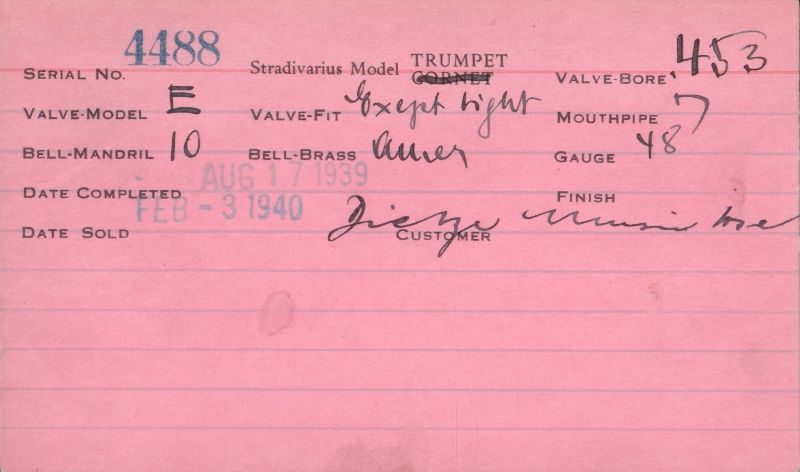 SERIAL NO. 4488 Stradivarius Model TRUMPET CORNET VALVE-BORE .453
VALVE-MODEL E VALVE-FIT Exept tight MOUTHPIPE 7
BELL-MANDRIL 10 BELL-BRASS Amer GAUGE 48
DATE COMPLETED AUG 17 1939 FINISH
DATE SOLD FEB - 3 1940 CUSTOMER Dietze Music